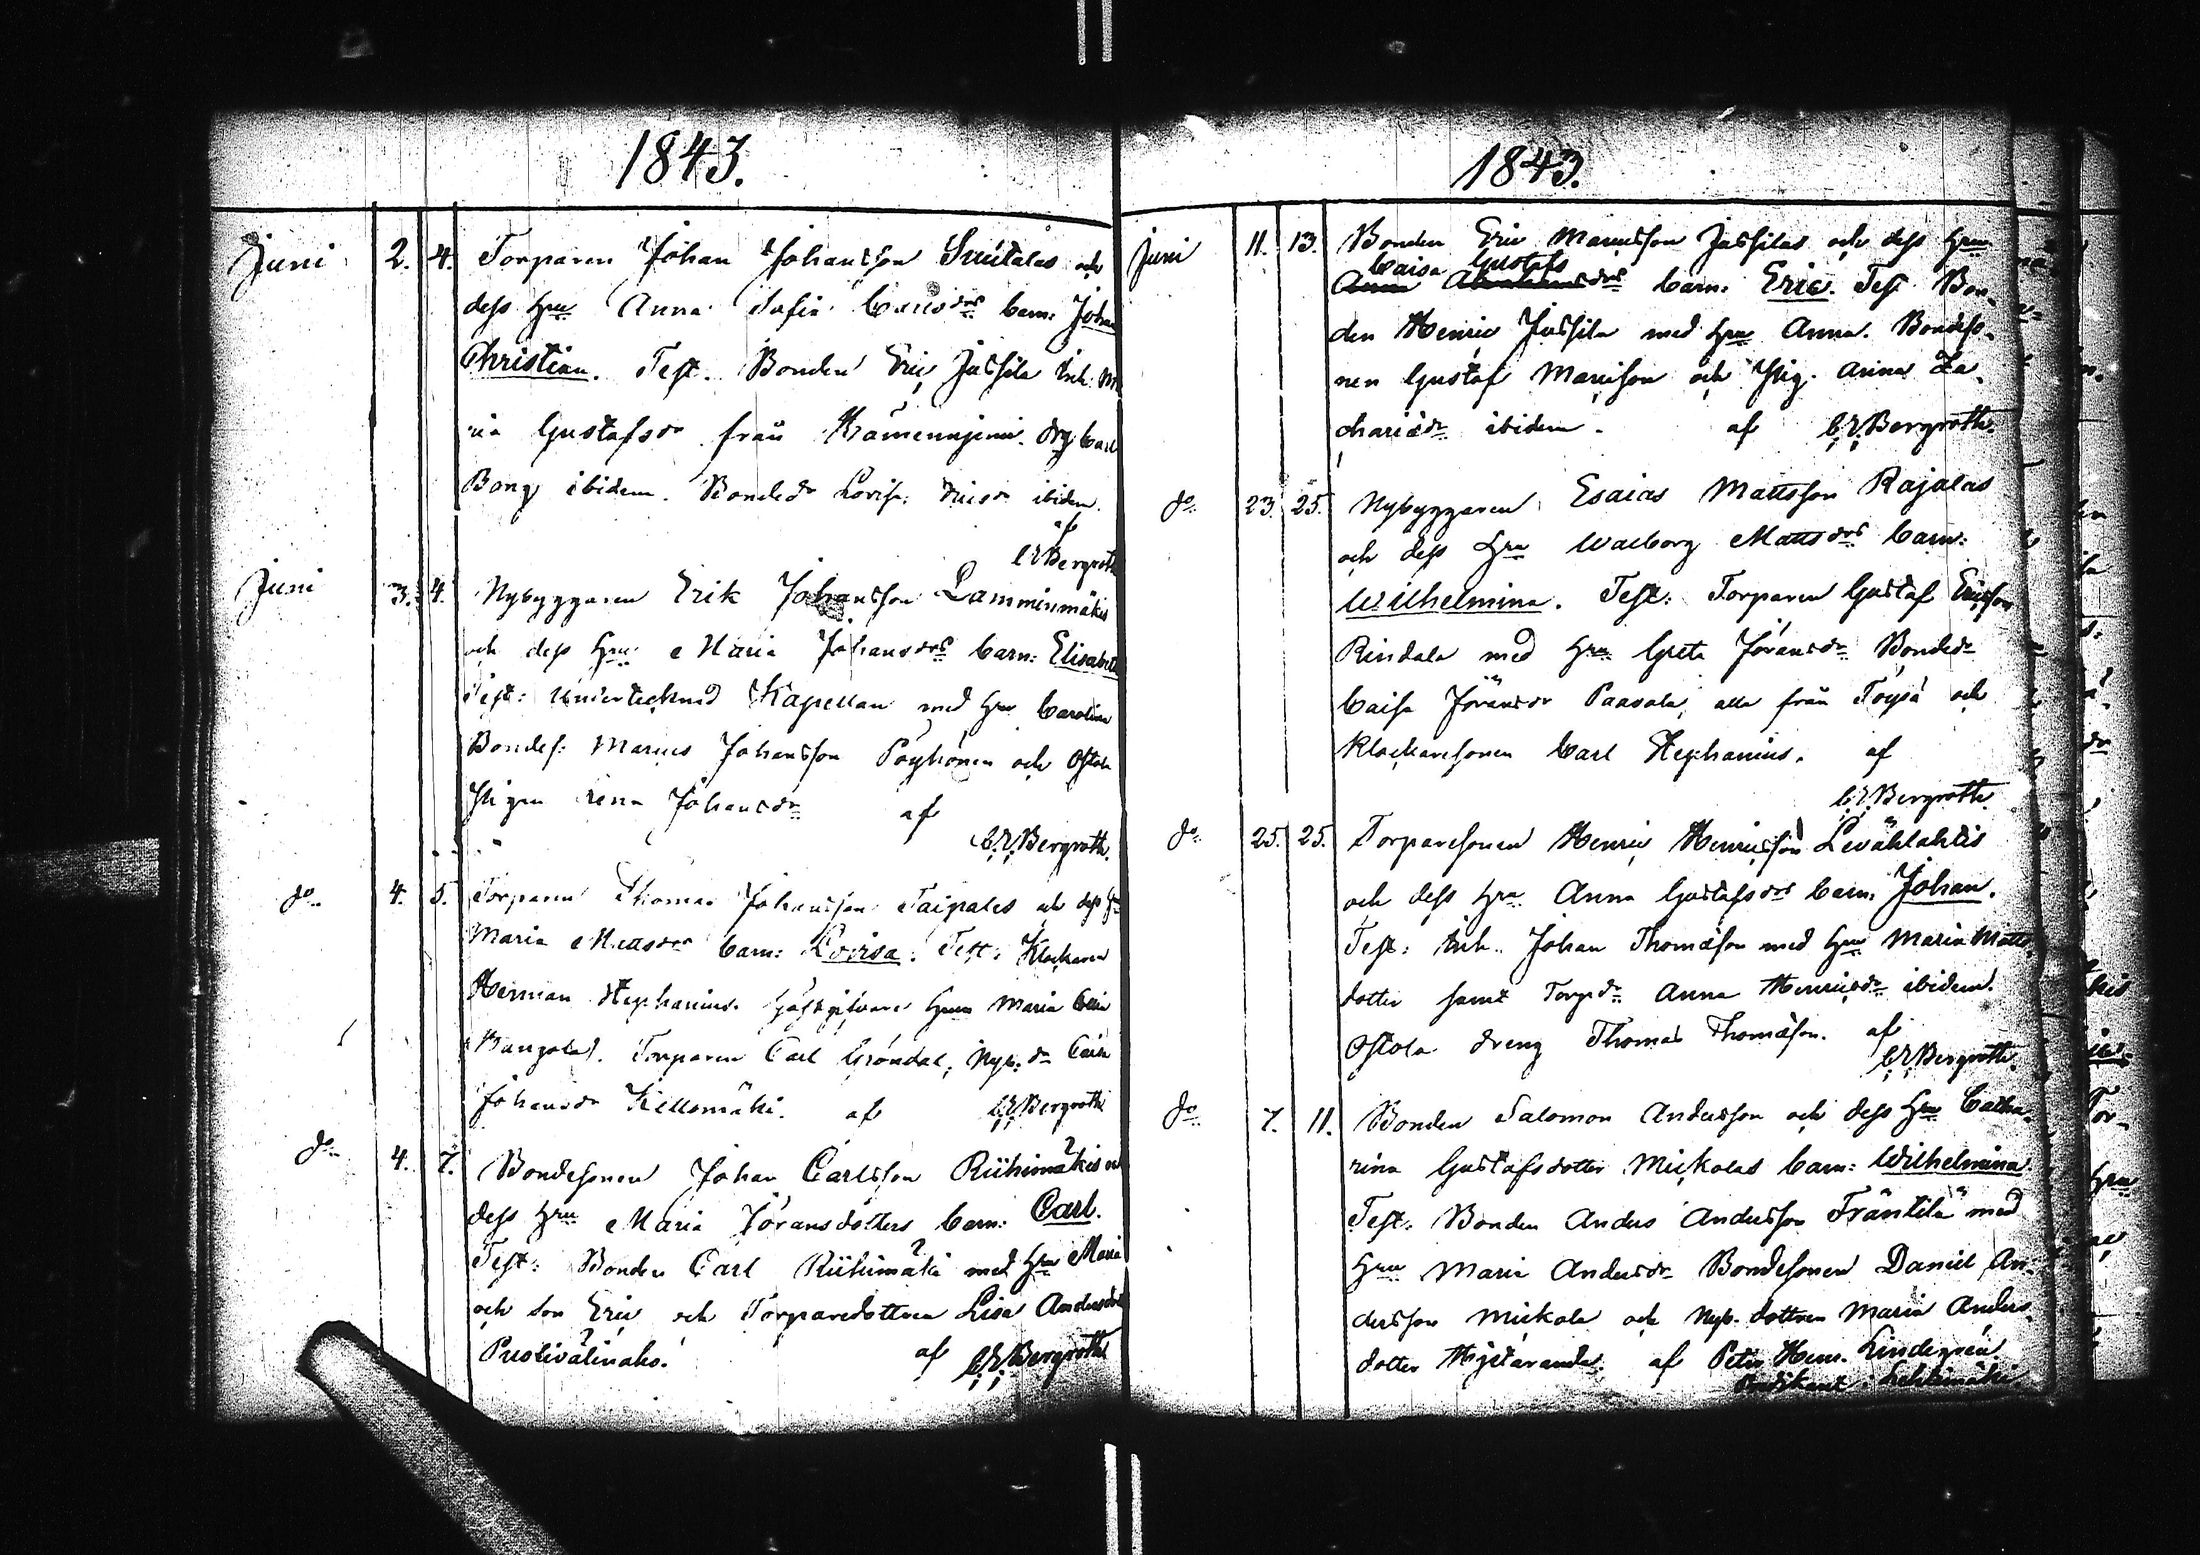 1843.
Juni 2. 4. Torparen Johan Johansson och
dess Hru Anna Sofia barn: Johan
Christian. Test. Bonden Eric Jussila Enk. Ma
ria Gustafsdr från drg Carl
Bong ibidem. Bondedr Lovisa ibidem.
af
C E Bergroth
Juni 3. 4. Nybyggaren Erik Johansson Lamminmäkis
och dess Hru Maria Johansdrs barn: Elisabeth
Test: Undertecknad Kapellan med Hru Carolina
Bondes: Johansson Pöyhönen och Ostola
Pigan Johansdr af
C. E. Bergroth.
do 4. 5. Torparen Thomas Johansson Taipales och dess Hru
Maria barn: Lovisa. Test: Klockaren
Herman Stephanius. Gästgifvare Hrun Maria
Torparen Carl Gröndal, Nyb. dr Caisa
Johansdr Kellomäki. af C. E. Bergroth
do 4. 7. Bondesonen Johan Carlsson Riihimäkis och
dess Hru Maria Göransdotters barn: Carl.
Test: Bonden Carl Riihimäki med Hru Maria
och son Eric och Torparedottren Lisa Andersdotter
af C. E. Bergroth
1843.
Juni 11. 13. Bonden Eric Jussilas och dess Hru
Caisa Gustafs
Anna Abrahamsdrs barn: Eric. Test Bon-
den Henric Jussila med Hru Anna. Bondeso-
nen Gustaf och Pig. Anna Za-
chariædr ibidem. af C. E. Bergroth.
do 23. 25. Nybyggaren Esaias Mattsson Rajalas
och dess Hru Walborg Mattsdrs barn:
Wilhelmina. Test: Torparen Gustaf Ericsson
Rindala med Hru Greta Göransdr Bondedr
Caisa Göransdr Paavola, alla från Töysä och
Klockaresonen Carl Stephanius. af
C. E. Bergroth.
do 25. 25. Torparesonen Henric Henricsson Levählahtis
och dess Hru Anna Gustafsdrs barn: Johan.
Test: Inh. Johan Thomasson med Hru Maria Matts-
dotter samt Torpdr Anna Henricsdr ibidem.
Ostola dreng Thomas Thomasson. af
C. E. Bergroth.
do 7. 11. Bonden Salomon Andersson och dess Hru Catha-
rina Gustafsdotter Mickolas barn: Wilhelmina.
Test. Bonden Anders Andersson Fräntilä med
Hru Maria Andersdr Bondesonen Daniel An-
dersson Mickola och Nyb. dottren Maria Anders-
dotter af Petter Hem. Lindegrén
Predikant i Lehtimäki.